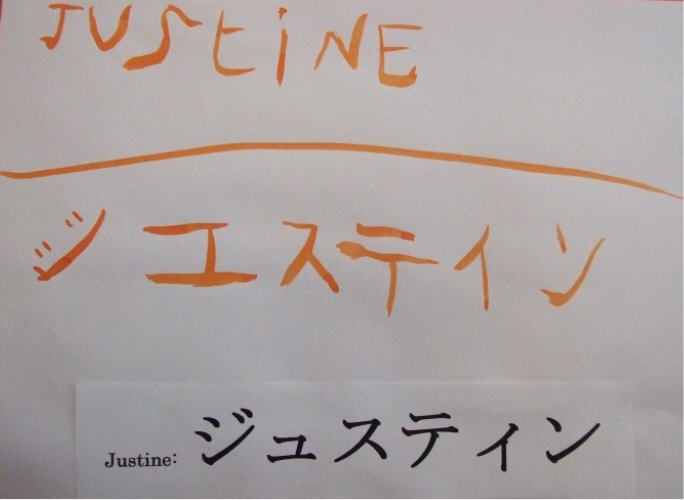 JUStiNE
ジエスティン
Justine: ジュスティン